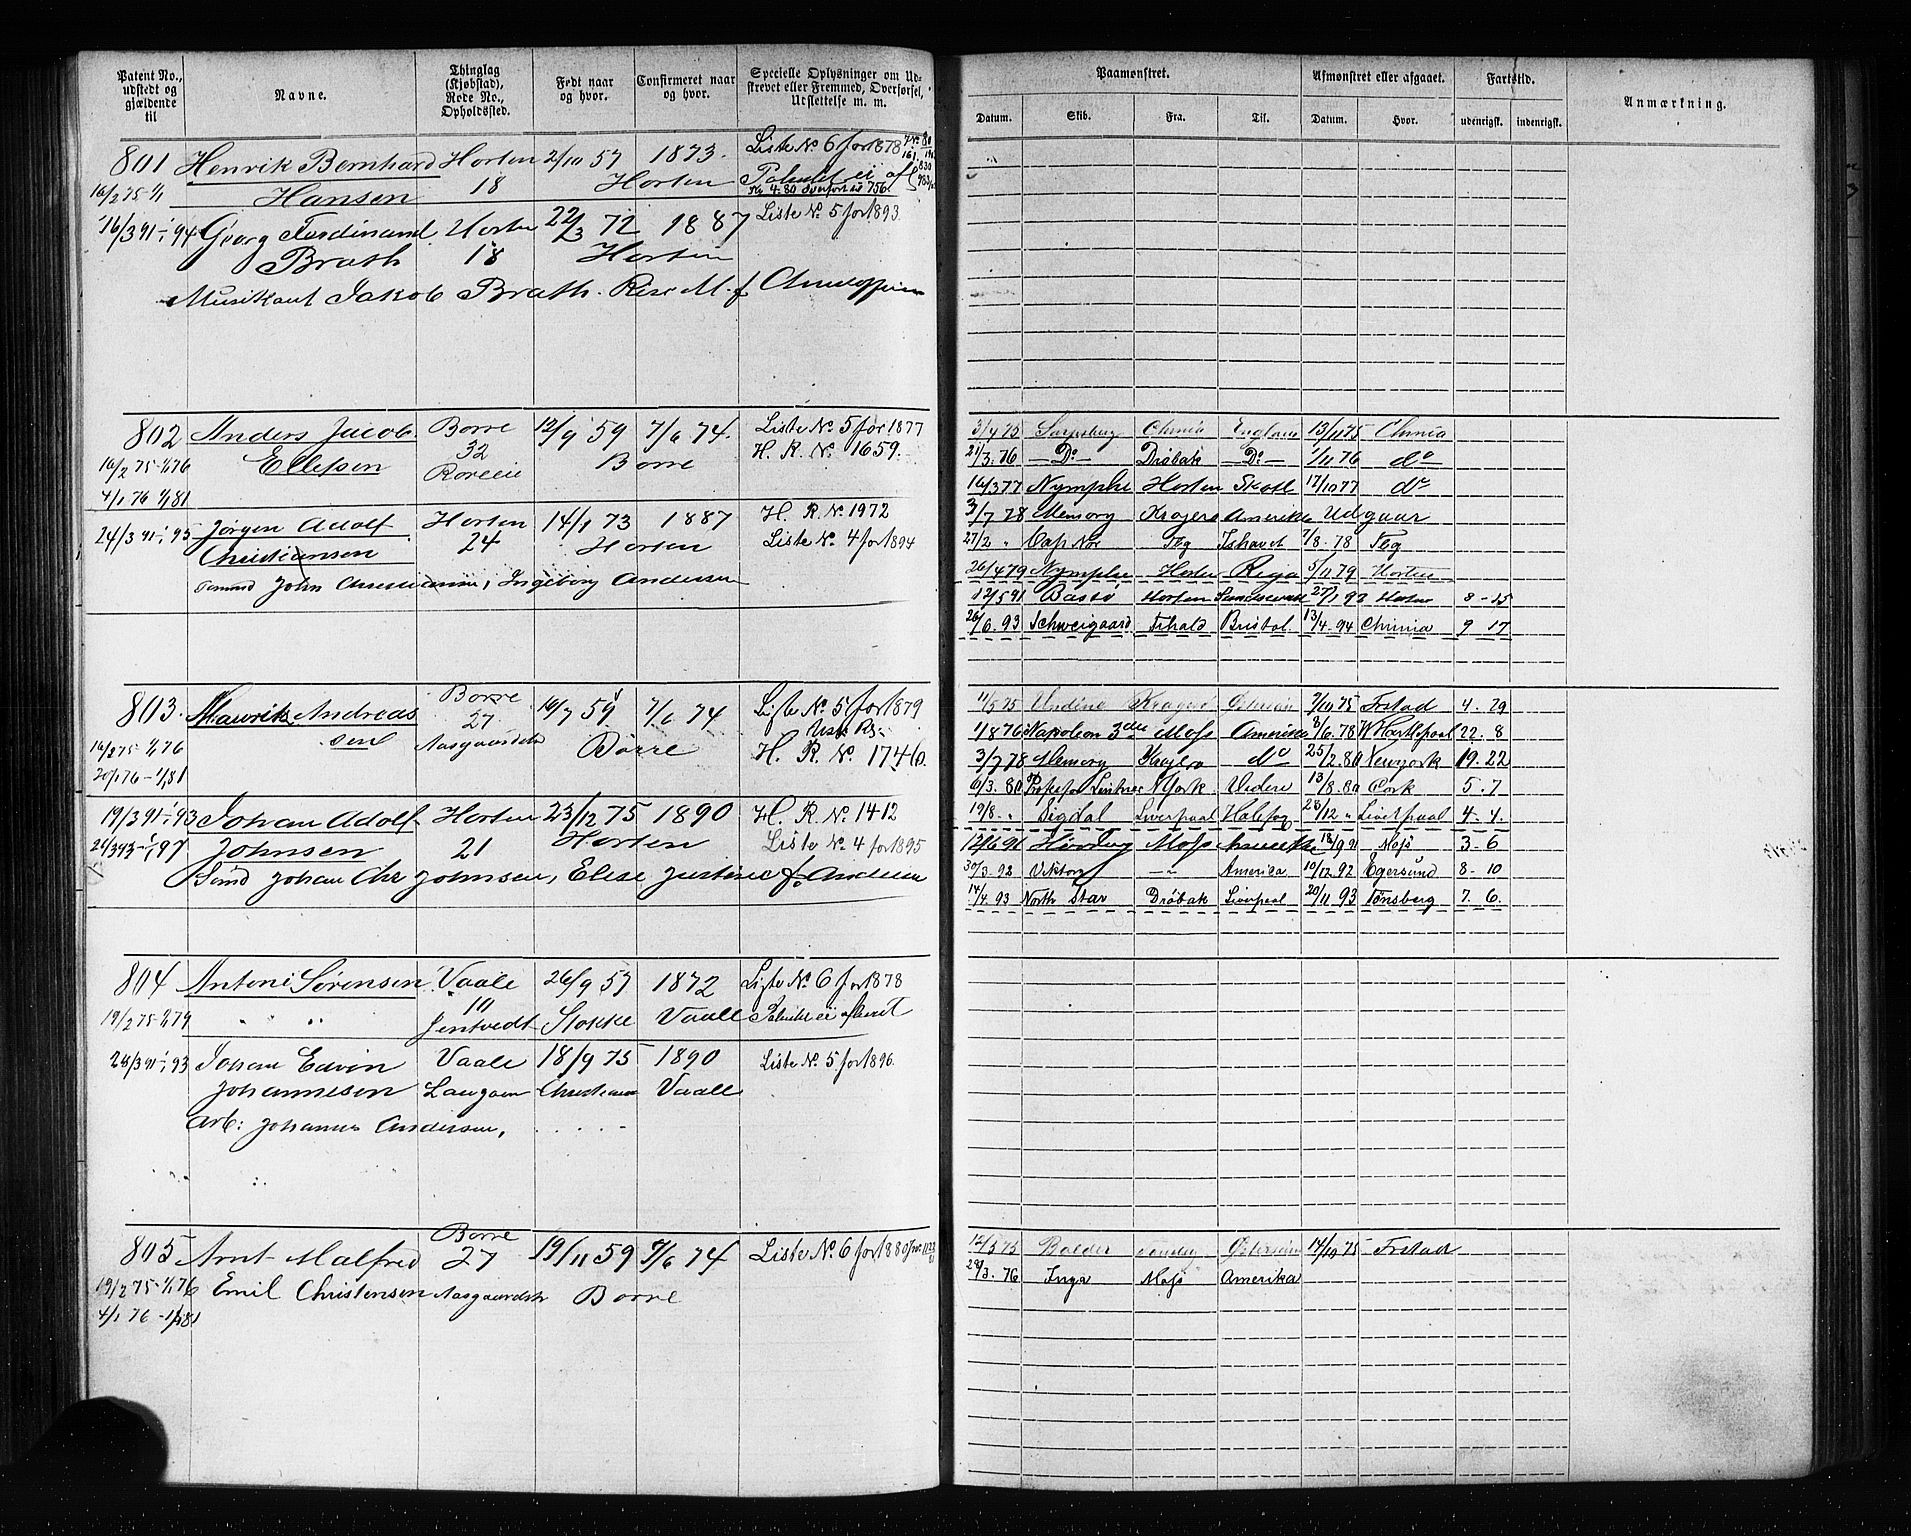 Patent No., udstedt og gjældende til
Navne.
Thinglag (Kjøbstad), Rode No., Opholdssted.
Født naar og hvor.
Confirmeret naar og hvor.
Specielle Oplysninger om Udstrevet eller Fremmed, Overførsel, Udslettelse m. m.
Paamønstret.
Afmønstret eller afgaaet.
Fartstid.
Anmærkning.
Datum.
Skib.
Fra.
Til.
Datum.
Hvor.
udenrigsk.
indenrigsk.
801 Henrik Bernhard Horten 2/10 57 1873 Liste No 6 for 1878
16/2 75 1/1 Hansen 18 Horten
16/3 91-1/1 94 Georg Ferdinand Horten 22/3 72 1887 Liste No. 5 for 1893
Brath 18 Horten
Musikant Jakob Brath.
802 Anders Jacob Borre 12/9 59 7/6 74. Liste No. 5 for 1877
16/2 75-1/1 76 Ellefsen 32 Borre H. R. No. 1659.
4/1 76 1/1 81
24/3 91-1/1 95 Jørgen Adolf Horten 14/1 73 1887 H. R. No 1972
Christiansen 24 Horten Liste No. 4 for 1894
John Christiansen, Ingeborg Andersen
803. Maurits Andreas Borre 16/7 59 7/6 74 Liste No. 5 for 1879
16/2 75-1/1 76 sen 27 Aasgaardstr Borre H. R. No. 1746.
20/1 76-1/1 81
19/3 91-1/1 93 Johan Adolf Horten 23/12 75 1890 H. R. No 1412
Johnsen 21 Horten Liste No. 4 for 1895
Tømd Johan Chr Johnsen, Elise f. Andersen
804 Antoni Sørensen Vaale 26/9 57 1872 Liste No. 6 for 1878
19/2 75-1/1 79 " " 10 Jentvedt Stokke Vaale
24/3 91-1/1 93 Johan Edvin Vaale 18/9 75 1890 Liste No. 5 for 1896
Johannesen Langøen Christiania Vaale
Arb: Johannes Andersen,
805 Arnt Malfred Borre 27 19/11 59 7/6 74 Liste No. 6 for 1880
19/2 75-1/1 76 Emil Christensen Aasgaardstr Borre
4/1 76-1/1 81
3/4 75 Sarpsborg Chnia England 13/11 75 Chnia
21/3. 76 - Do - Drøbak - Do - 1/11 76 do
16/3 77 Nymphe Horten Skotl 17/10 77 do
3/7 78 Memory Kragerø Amerika Udgaar
27/2 " Cap Nor Tbg Ishavet 7/8-78 Tbg
26/4 79 Nymphe Horten Riga 5/11 79 Horten
12/5 91 Bastø Horten Sundsvall 27/1 92 Horten 8-15
26/6. 93 Schweigaard Frhald Bristol. 13/4. 94 Chnia 9 17
11/5 75 Undine Kragerø Østersøen 7/10 75 Frstad 4. 29
1/8 76 Napoleon 3die Moss Amerika 8/6. 78 W Hartlepool 22. 8
3/7 78 Memory Kragerø do 25/2. 80 Newyork 19. 22
6/3. 80 Profesor Lintner N York Videre 13/8. 80 Cork 5. 7
19/8. " Sigdal Liverpool Halifax 28/12 " Liverpool 4. 4
12/6 91 Moss Amerika 18/9 91 Moss 3-6
30/3. 92 Viktory - " - Amerika 10/12. 92 Egersund 8-10
14/4. 93 North Star Drøbak Liverpool 20/11 93 Tønsberg 7. 6.
12/5 75 Balder Østersøen 14/10 75 Frstad
28/3. 76 Inga Moss Amerika